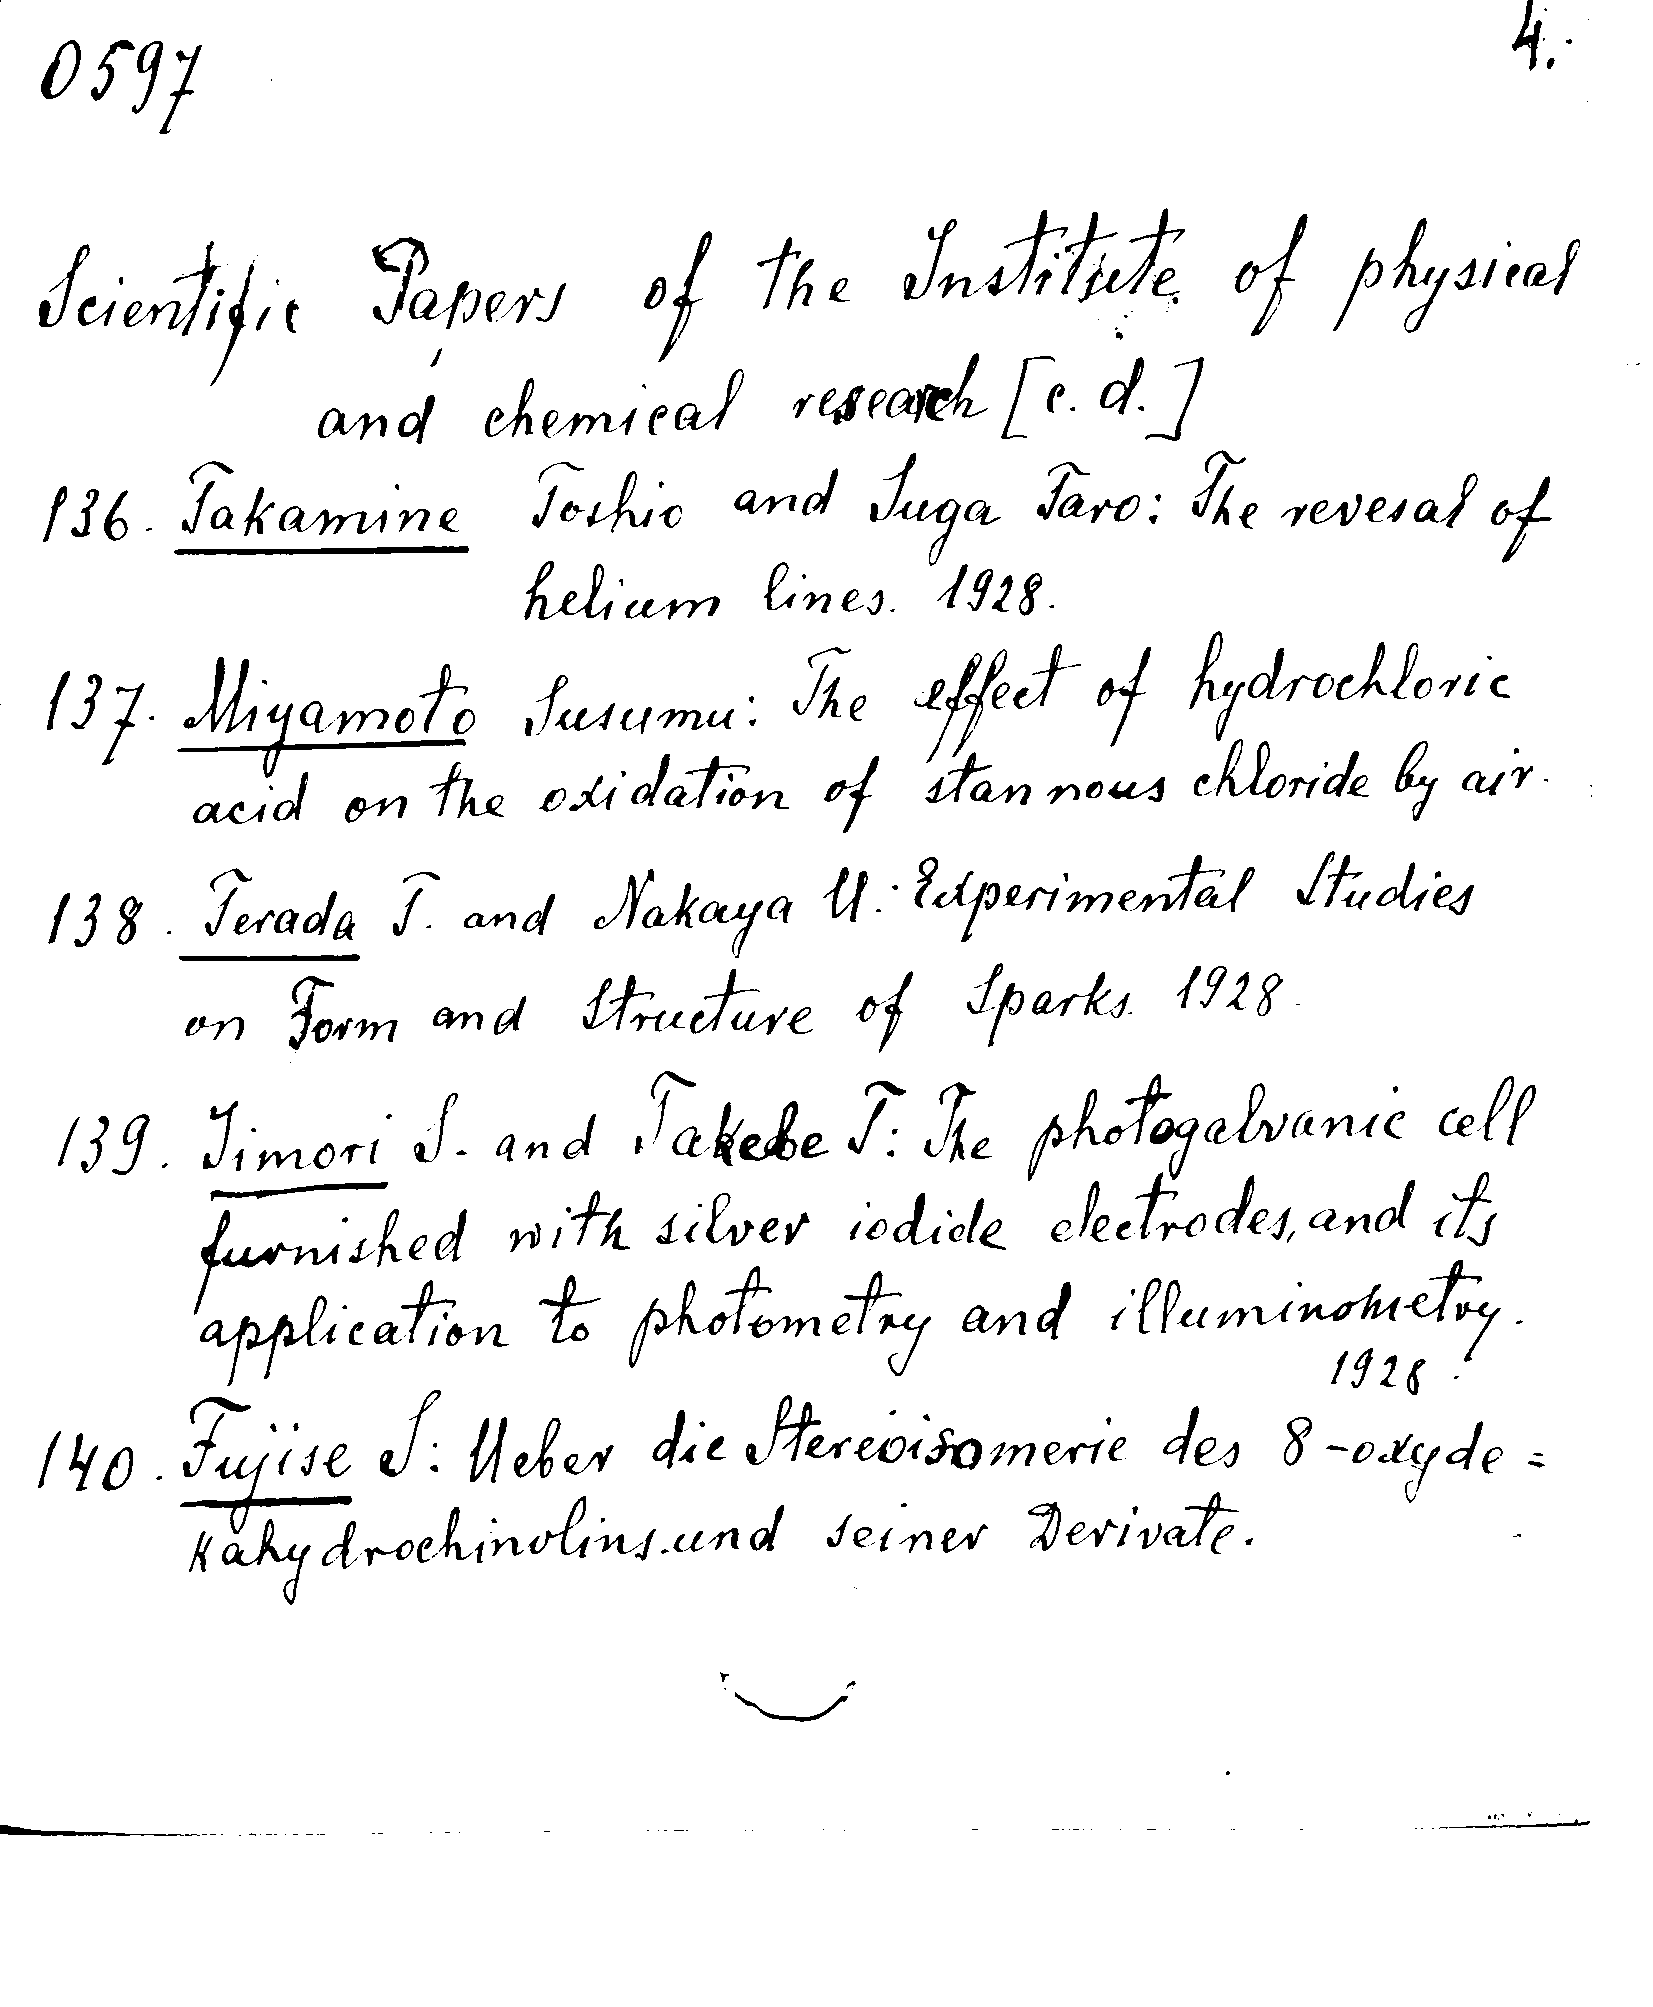 0597
4.
Scientific Papers of the Institute of physical
and chemical research [c. d.]
136. Takamine Toshio and Suga Taro: The revesal of
helium lines. 1928.
137. Miyamoto Susumu: The effect of hydrochloric
acid on the oxidation of stannous chloride by air.
138. Terada T. and Nakaya U.: Experimental Studies
on Form and Structure of Sparks. 1928.
139. Iimori S. and Takebe T: The photogalvanic cell
furnished with silver iodide electrodes, and its
application to photometry and illuminometry.
1928.
140. Fujise S: Ueber die Stereoisomerie des 8-oxyde=
kahydrochinolins und seiner Derivate.